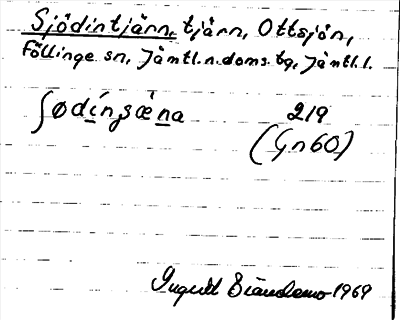 Sjödintjärn, tjärn, Ottsjön,
Föllinge sn, Jämtl. n. doms. tg, Jämtl. l.
ʃødínsæ̀na 219
(Gn60)
Ingrid 1969